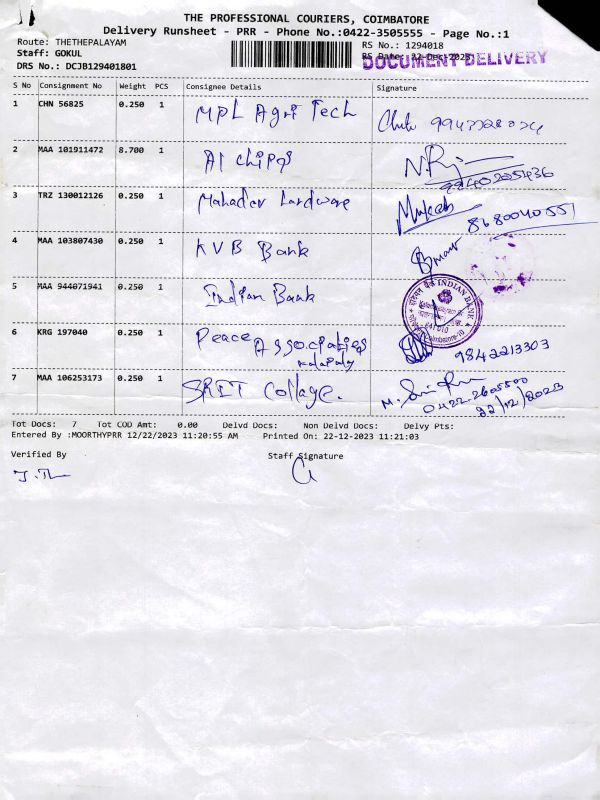 THE PROFESSIONAL COURIERS, COIMBATORE
Delivery Runsheet - PRR - Phone No.:0422-3505555 - Page No.:1
Route: THETHEPALAYAM
RS No.: 1294018
Staff: GOKUL
RS Date: 22-Dec-2023
DOCUMENT DELIVERY
DRS No.: DCJB129401801
S No Consignment No Weight PCS Consignee Details Signature
1 CHN 56825 0.250 1 MPL Agri Tech
2 MAA 101911472 8.700 1 A1 Chips 9940205436
3 TRZ 130012126 0.250 1 Mahadev Hardware Mukesh 8680040551
4 MAA 103807430 0.250 1 KVB Bank
5 MAA 944071941 0.250 1 Indian Bank
INDIAN BANK
6 KRG 197040 0.250 1 Peace Associaties 9842213303
7 MAA 106253173 0.250 1 SRIT Collage.
0422-2605500
22/12/2023
Tot Docs: 7 Tot COD Amt: 0.00 Delvd Docs: Non Delvd Docs: Delvy Pts:
Entered By :MOORTHYPRR 12/22/2023 11:20:55 AM Printed On: 22-12-2023 11:21:03
Verified By Staff Signature